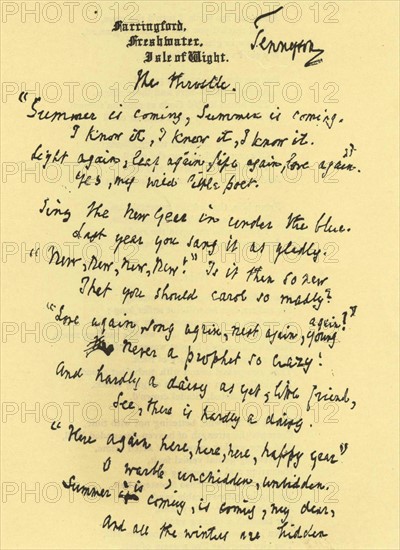 Farringford,
Freshwater,
Isle of Wight.
Tennyson
The Throstle.
"Summer is coming, Summer is coming.
I know it, I know it, I know it.
Light again, leaf again, life again, love again".
Yes, my wild little poet.
Sing the New Year in under the blue.
Last year you sang it as gladly.
"New, new, new, new!" Is it then so new
That you should carol so madly?
"Love again, song again, nest again, young again!"
Never a prophet so crazy!
And hardly a daisy as yet, little friend,
See, there is hardly a daisy.
"Here again here, here, here, happy year"
O warble, unchidden, unbidden.
Summer is coming, is coming, my dear,
And all the winters are hidden